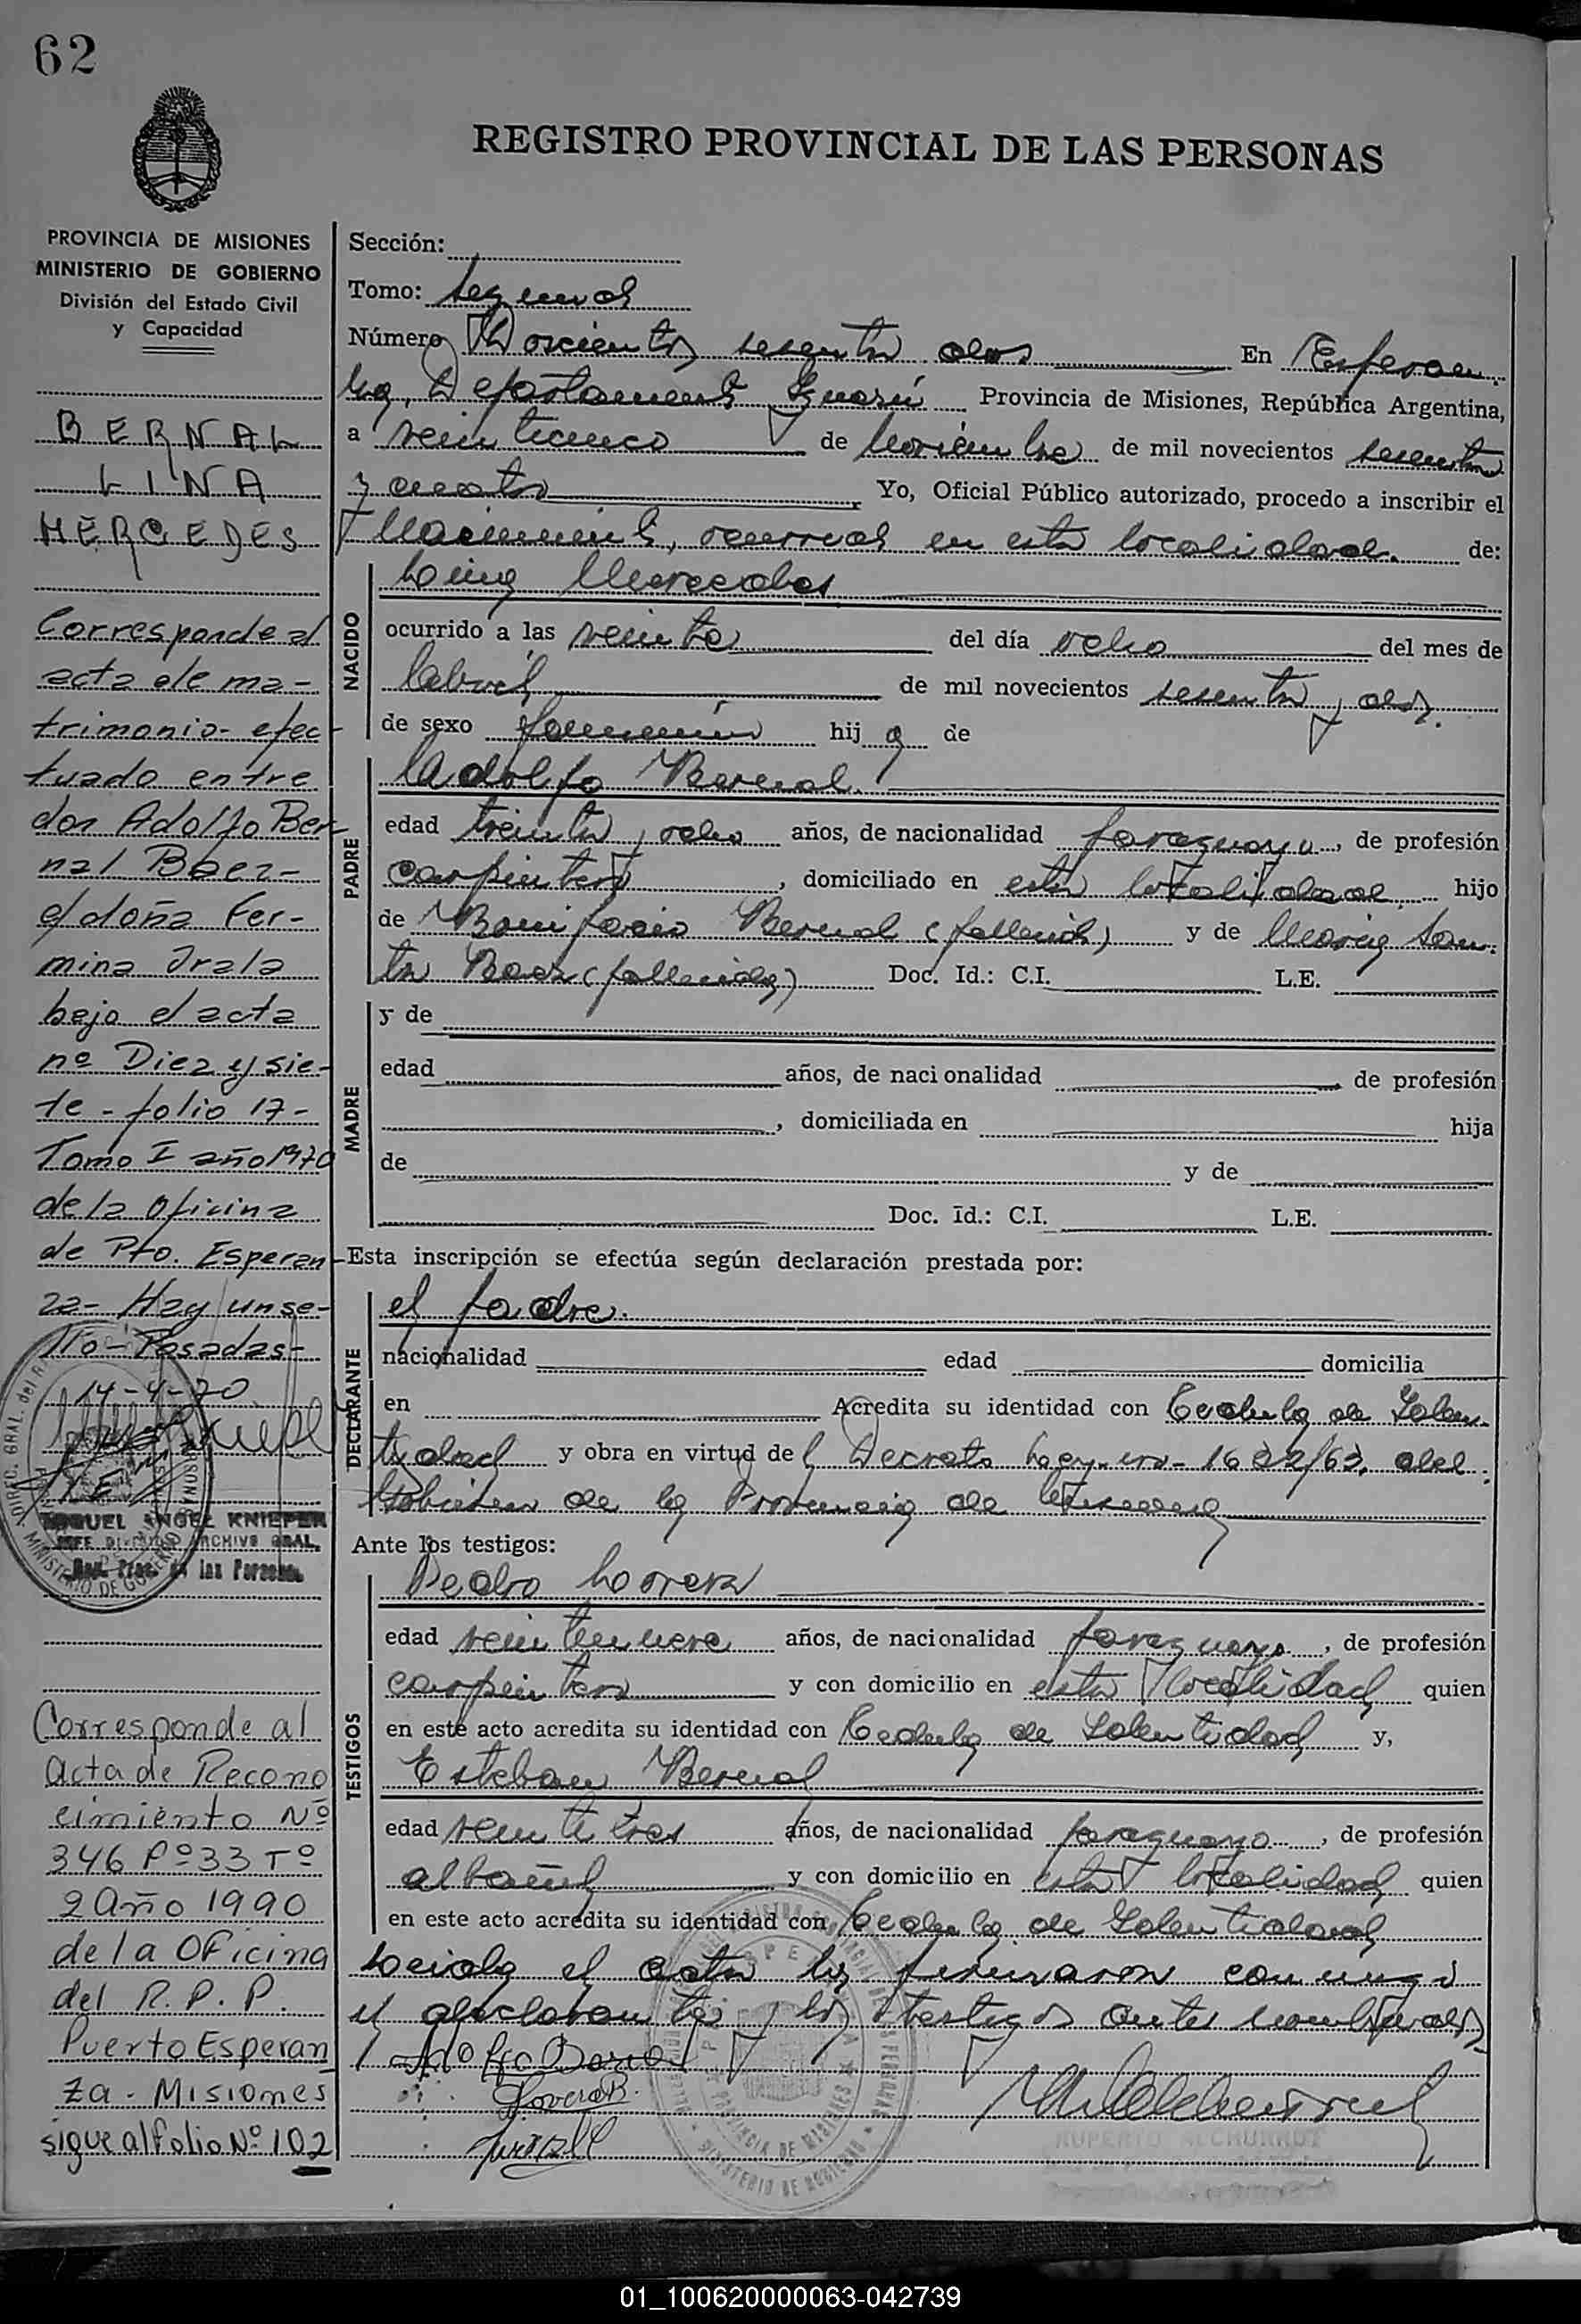 62
REGISTRO PROVINCIAL DE LAS PERSONAS
PROVINCIA DE MISIONES
MINISTERIO DE GOBIERNO
División del Estado Civil
y Capacidad
BERNAL
LINA
MERCEDES
Corresponde al
acta de ma-
trimonio- efec-
tuado entre
don Adolfo Ber
nal Baez-
y doña Fer-
mina Irala
bajo el acta
nº Diez y sie-
te - folio 17-
Tomo I año 1970
de la oficina
de Pto. Esperan
za- Hay un se-
llo- Posadas-
14-4-70
MIGUEL ANGEL KNIEPER
JEFE DIVISION ARCHIVO GRAL.
Reg. Prov. de las Personas
Corresponde al
Acta de Recono
cimiento Nº
346 Fº33 Tº
2 Año 1990
de la Oficina
del R.P.P.
Puerto Esperan
za - Misiones
sigue al folio Nº 102
Sección:
Tomo: Segundo
Número Doscientos sesenta dos En Esperan
za, Departamento Iguazú Provincia de Misiones, República Argentina,
a veinticinco de Noviembre de mil novecientos sesenta
y cuatro Yo, Oficial Público autorizado, procedo a inscribir el
Nacimiento, ocurrido en esta localidad. de:
NACIDO
Lina Mercedes
ocurrido a las veinte del día ocho del mes de
Abril de mil novecientos sesenta y dos.
de sexo femenino hija de
PADRE
Adolfo Bernal.
edad treinta y ocho años, de nacionalidad paraguaya, de profesión
carpintero, domiciliado en esta localidad, hijo
de Bonifacio Bernal (fallecido) y de María San
ta Baez (fallecida) Doc. Id.: C.I. L.E.
MADRE
y de
edad años, de nacionalidad , de profesión
, domiciliada en hija
de y de
Doc. Id.: C.I. L.E.
Esta inscripción se efectúa según declaración prestada por:
DECLARANTE
el padre.
nacionalidad edad domicilia
en Acredita su identidad con Cedula de Iden
tidad y obra en virtud del Decreto 1622/63, del
Gobierno de la Provincia de Misiones
Ante los testigos:
TESTIGOS
Pedro Lovera
edad veintinueve años, de nacionalidad paraguaya, de profesión
carpintero y con domicilio en esta localidad quien
en este acto acredita su identidad con Cedula de Identidad y,
Esteban Bernal
edad veintitres años, de nacionalidad paraguaya, de profesión
albañil y con domicilio en esta localidad quien
en este acto acredita su identidad con Cedula de Identidad
Leida el acta la firmaron conmigo
el declarante y los testigos antes nombrados
Adolfo Bernal
Lovera B.
01_100620000063-042739